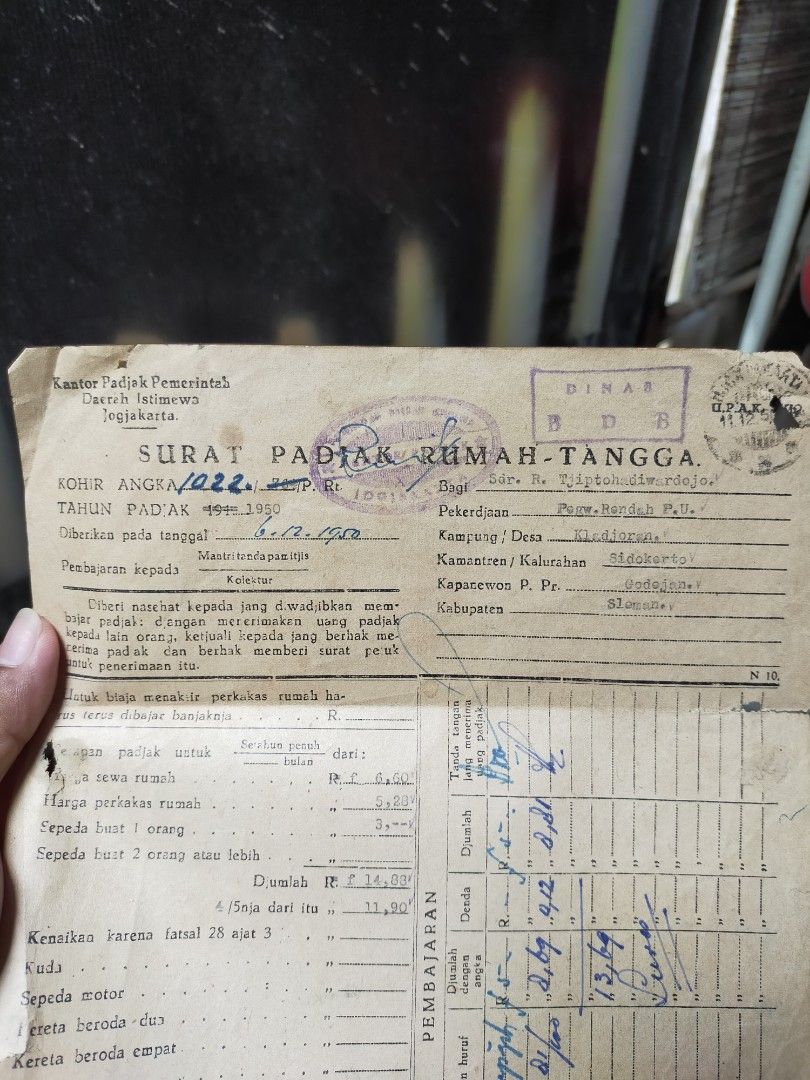 Kantor Padjak Pemerintah
Daerah Istimewa
Jogjakarta.
DINAS
B D B
U.P.A.K.
SURAT PADJAK RUMAH-TANGGA.
KOHIR ANGKA 1022. / P. Rt.
TAHUN PADJAK 194 1950
Diberikan pada tanggal 6.12.1950
Pembajaran kepada Mantri tanda pamitjis
Kolektur
Bagi Sdr. R. Tjiptohadiwardojo.
Pekerdjaan Pegw.Rendah P.U.
Kampung / Desa Kladjoran.
Kamantren / Kalurahan Sidokerto
Kapanewon P. Pr. Godejan.
Kabupaten Sleman.
Diberi nasehat kepada jang diwadjibkan mem-
bajar padjak: djangan menerimakan uang padjak
kepada lain orang, ketjuali kepada jang berhak me-
nerima padjak dan berhak memberi surat petuk
untuk penerimaan itu.
N 10.
Untuk biaja menaksir perkakas rumah ha-
rus terus dibajar banjaknja . . . . . R.
padjak untuk Setahun penuh dari:
bulan
sewa rumah . . . . . R. f 6,60
Harga perkakas rumah . . . . „ 5,28
Sepeda buat 1 orang . . . . „ 3,--
Sepeda buat 2 orang atau lebih . . „
Djumlah R. f 14,88
4/5nja dari itu „ 11,90
Kenaikan karena fatsal 28 ajat 3 . . „
Kuda . . . . . „
Sepeda motor . . . . . „
Kereta beroda dua . . . . „
Kereta beroda empat . . . . „
PEMBAJARAN
Tanda tangan
jang menerima
uang padjak
Djumlah
R. 5 -
„ 2,81
Denda
R. -
„ 0,12
Djumlah
dengan
angka
R. 5 -
„ 2,69
„ 13,69
n huruf
21/100